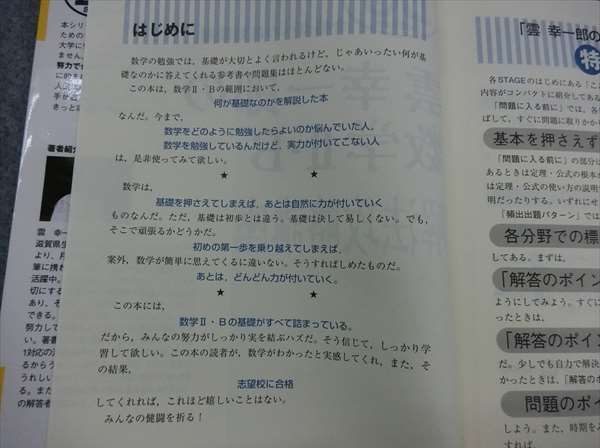 はじめに
数学の勉強では、基礎が大切とよく言われるけど、じゃあいったい何が基
礎なのかに答えてくれる参考書や問題集はほとんどない。
この本は、数学Ⅱ・Bの範囲において、
何が基礎なのかを解説した本
なんだ。今まで、
数学をどのように勉強したらよいのか悩んでいた人、
数学を勉強しているんだけど、実力が付いてこない人
は、是非使ってみて欲しい。
★ ★
数学は、
基礎を押さえてしまえば、あとは自然に力が付いていく
ものなんだ。ただ、基礎は初歩とは違う。基礎は決して易しくない。でも、
そこで頑張るかどうかだ。
初めの第一歩を乗り越えてしまえば、
案外、数学が簡単に思えてくるに違いない。そうすればしめたものだ。
あとは、どんどん力が付いていく。
★ ★
この本には、
数学Ⅱ・Bの基礎がすべて詰まっている。
だから、みんなの努力がしっかり実を結ぶハズだ。そう信じて、しっかり学
習して欲しい。この本の読者が、数学がわかったと実感してくれ、また、そ
の結果、
志望校に合格
してくれれば、これほど嬉しいことはない。
みんなの健闘を祈る！
「雲 幸一郎の
特
各STAGEのはじめにある「こ
内容がコンパクトに紹介してある
「問題に入る前に」では、各
ばして、すぐに問題に取りかかり
基本を押さえず
「問題に入る前に」の部分は
あるときは定理・公式の根本が
は定理・公式の使い方の説明
明だったりする。いずれにせ
「頻出出題パターン」では
各分野での標
してある。まずは、
「解答のポイン
ようにしてみよう。すぐに
ったときは、
「解答のポイン
だ。少しでも自力で解決
かったときは、「解答のポ
問題のポイ
しよう。また、時間をみ
すれば、
本シリ
ための
大学に
ません。
努力で
著者紹介
雲 幸一
滋賀県生